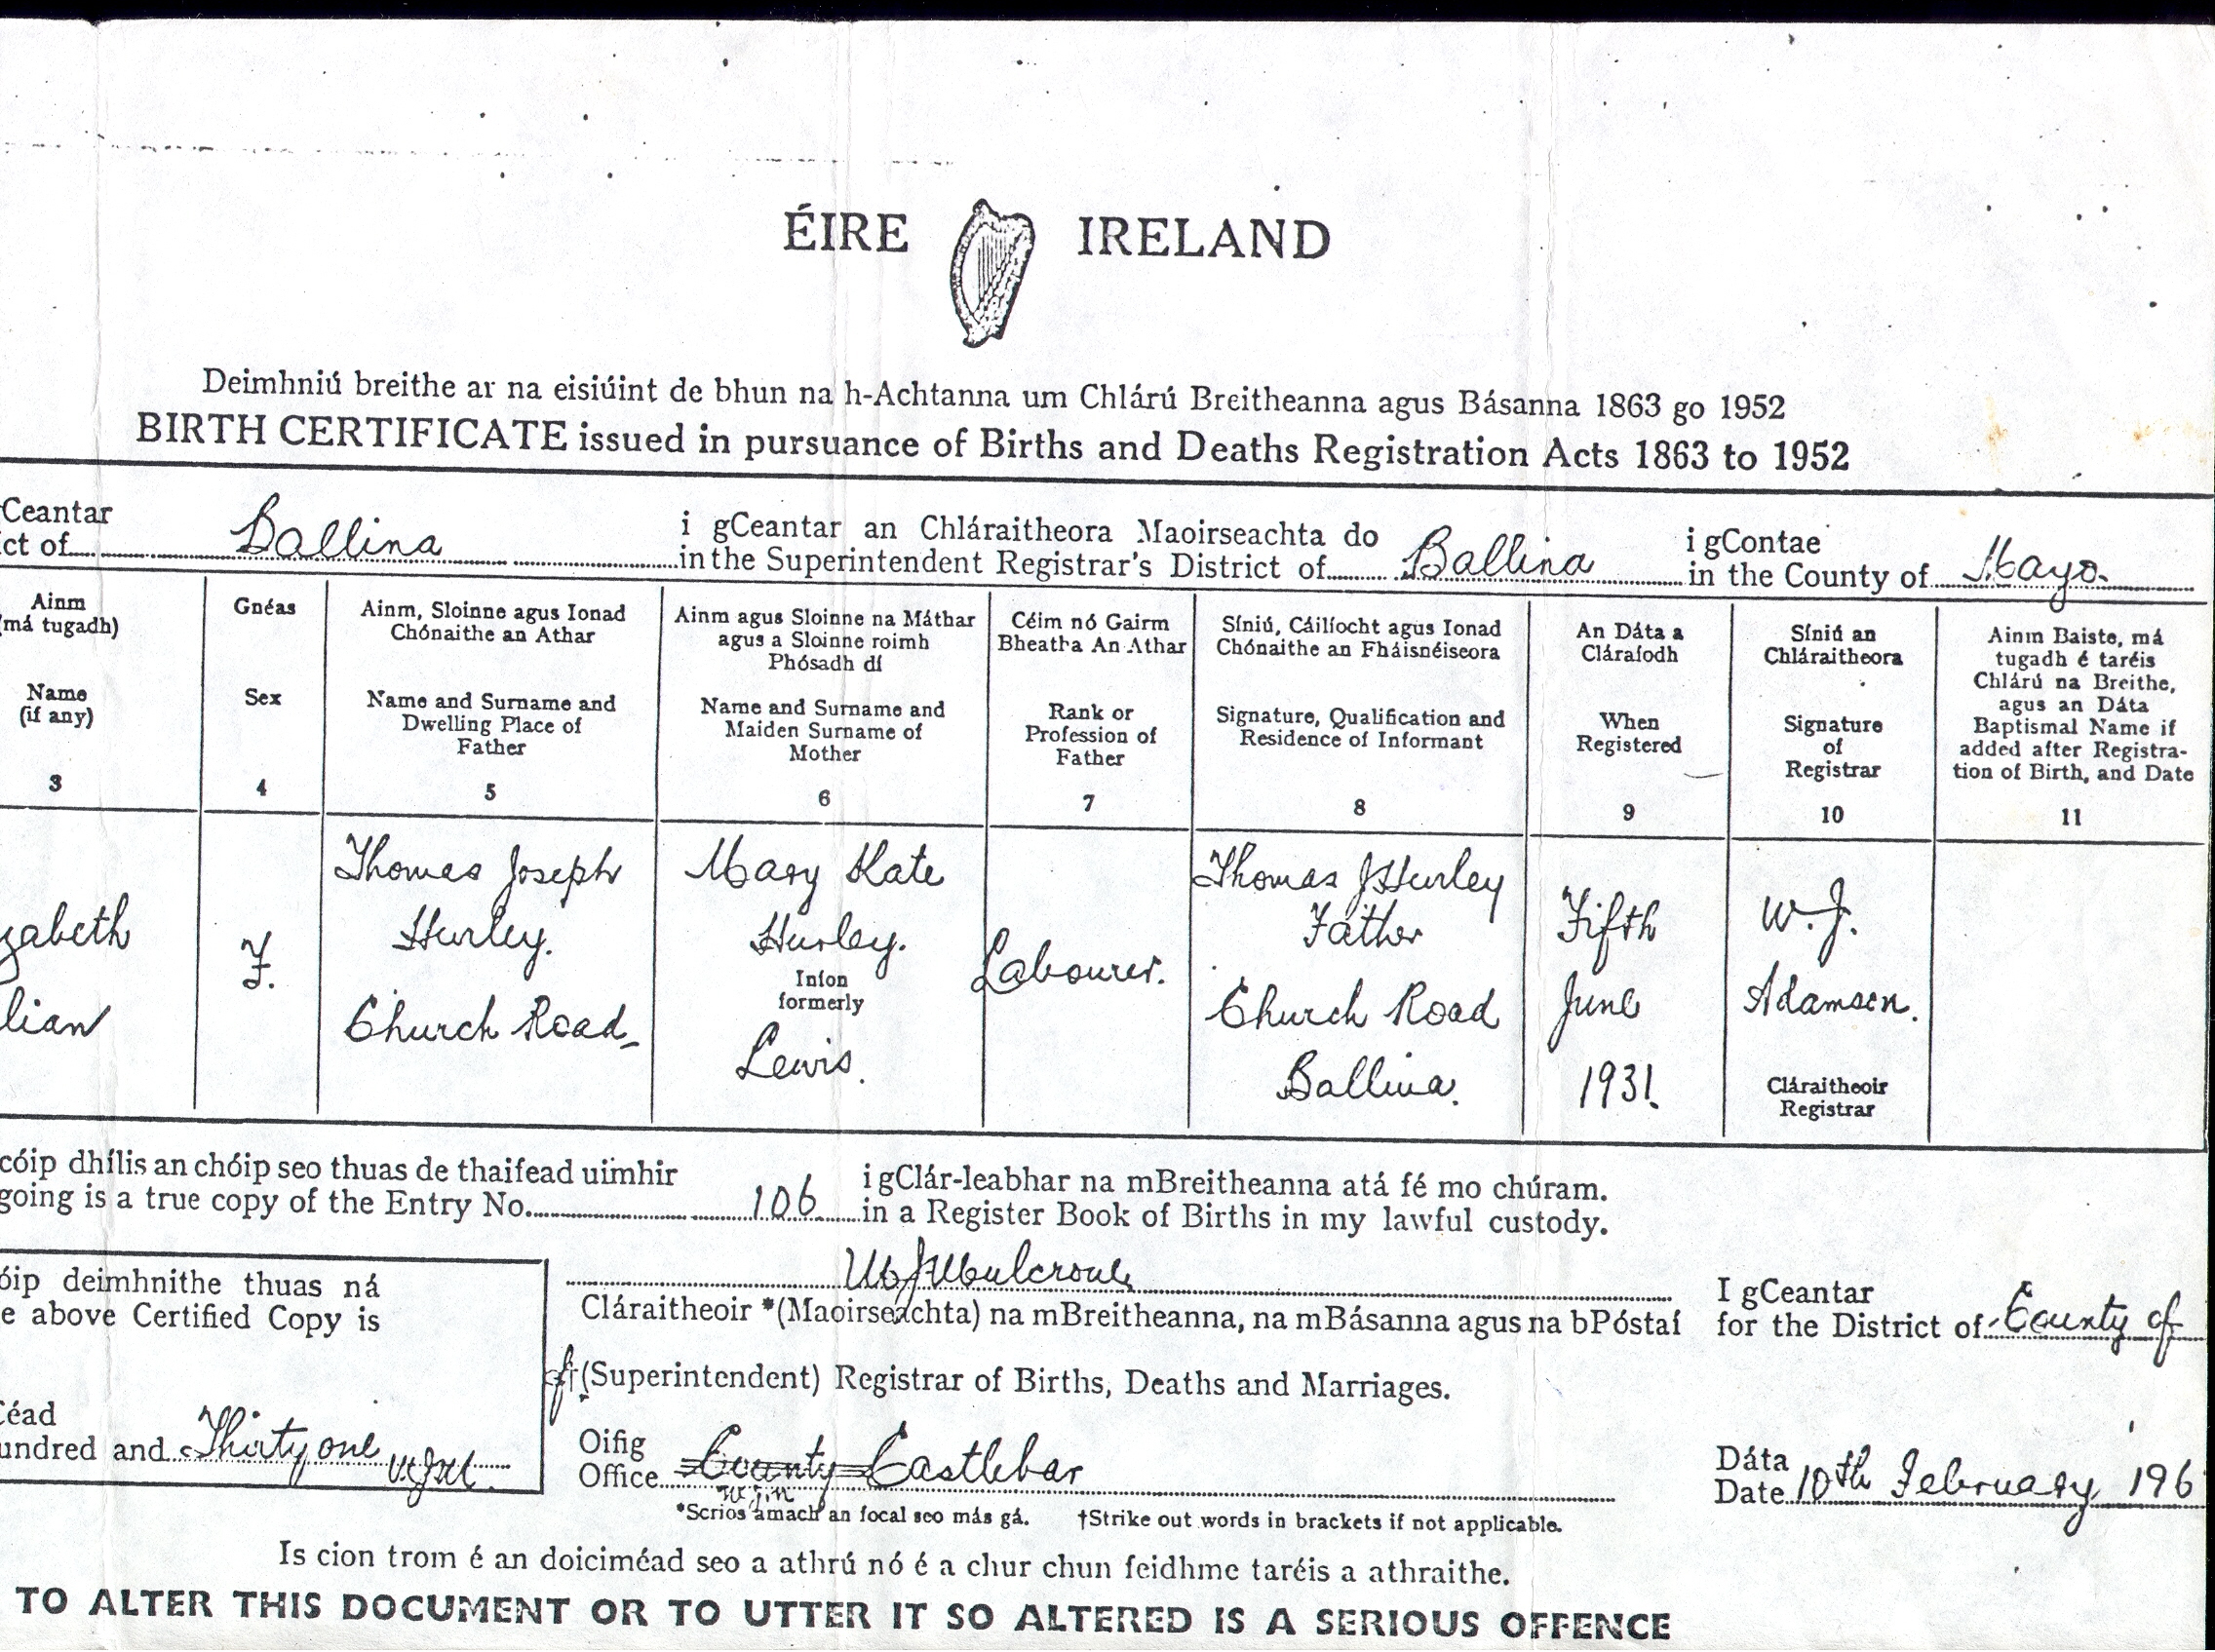 ÉIRE IRELAND
Deimhniú breithe ar na eisiúint de bhun na h-Achtanna um Chlárú Breitheanna agus Básanna 1863 go 1952
BIRTH CERTIFICATE issued in pursuance of Births and Deaths Registration Acts 1863 to 1952
Ceantar
ct of Ballina
i gCeantar an Chláraitheora Maoirseachta do
in the Superintendent Registrar's District of Ballina
i gContae
in the County of Mayo.
Ainm
(má tugadh)
Name
(if any)
3
Gnéas
Sex
4
Ainm, Sloinne agus Ionad
Chónaithe an Athar
Name and Surname and
Dwelling Place of
Father
5
Ainm agus Sloinne na Máthar
agus a Sloinne roimh
Phósadh dí
Name and Surname and
Maiden Surname of
Mother
6
Céim nó Gairm
Bheatha An Athar
Rank or
Profession of
Father
7
Síniú, Cáilíocht agus Ionad
Chónaithe an Fháisnéiseora
Signature, Qualification and
Residence of Informant
8
An Dáta a
Cláraíodh
When
Registered
9
Síniú an
Chláraitheora
Signature
of
Registrar
10
Ainm Baiste, má
tugadh é taréis
Chlárú na Breithe,
agus an Dáta
Baptismal Name if
added after Registra-
tion of Birth, and Date
11
zabeth
lian
F.
Thomas Joseph
Hurley.
Church Road
Mary Kate
Hurley.
Iníon
formerly
Lewis.
Labourer.
Thomas J Hurley
Father
Church Road
Ballina.
Fifth
June
1931.
W. J.
Adamson.
Cláraitheoir
Registrar
cóip dhílis an chóip seo thuas de thaifead uimhir
going is a true copy of the Entry No. 106
i gClár-leabhar na mBreitheanna atá fé mo chúram.
in a Register Book of Births in my lawful custody.
óip deimhnithe thuas ná
e above Certified Copy is
Céad
undred and Thirty one
Cláraitheoir *(Maoirseachta) na mBreitheanna, na mBásanna agus na bPóstaí
(Superintendent) Registrar of Births, Deaths and Marriages.
I gCeantar
for the District of County of
Oifig
Office County Castlebar
Dáta
Date 10th February 196
*Scrios amach an focal seo más gá. †Strike out words in brackets if not applicable.
Is cion trom é an doiciméad seo a athrú nó é a chur chun feidhme taréis a athraithe.
TO ALTER THIS DOCUMENT OR TO UTTER IT SO ALTERED IS A SERIOUS OFFENCE